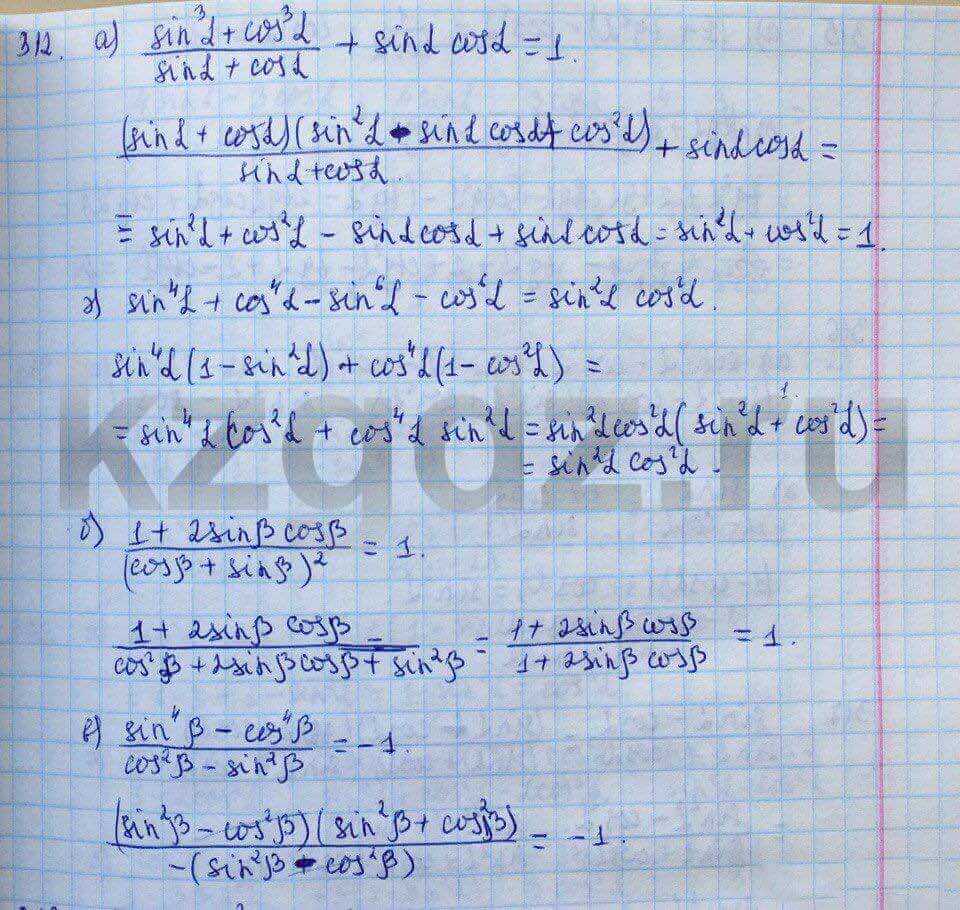 312. а) (sin³α + cos³α)/(sinα + cosα) + sinα cosα = 1.
(sinα + cosα)(sin²α - sinα cosα + cos²α)/(sinα + cosα) + sinα cosα =
= sin²α + cos²α - sinα cosα + sinα cosα = sin²α + cos²α = 1.
г) sin⁴α + cos⁴α - sin⁶α - cos⁶α = sin²α cos²α.
sin⁴α (1 - sin²α) + cos⁴α (1 - cos²α) =
= sin⁴α cos²α + cos⁴α sin²α = sin²α cos²α ( sin²α + cos²α) =
1
= sin²α cos²α.
kzgdz.ru
б) (1 + 2sinβ cosβ)/(cosβ + sinβ)² = 1.
(1 + 2sinβ cosβ)/(cos²β + 2sinβ cosβ + sin²β) = (1 + 2sinβ cosβ)/(1 + 2sinβ cosβ) = 1.
в) (sin⁴β - cos⁴β)/(cos²β - sin²β) = -1.
(sin²β - cos²β)(sin²β + cos²β)/-(sin²β - cos²β) = -1.